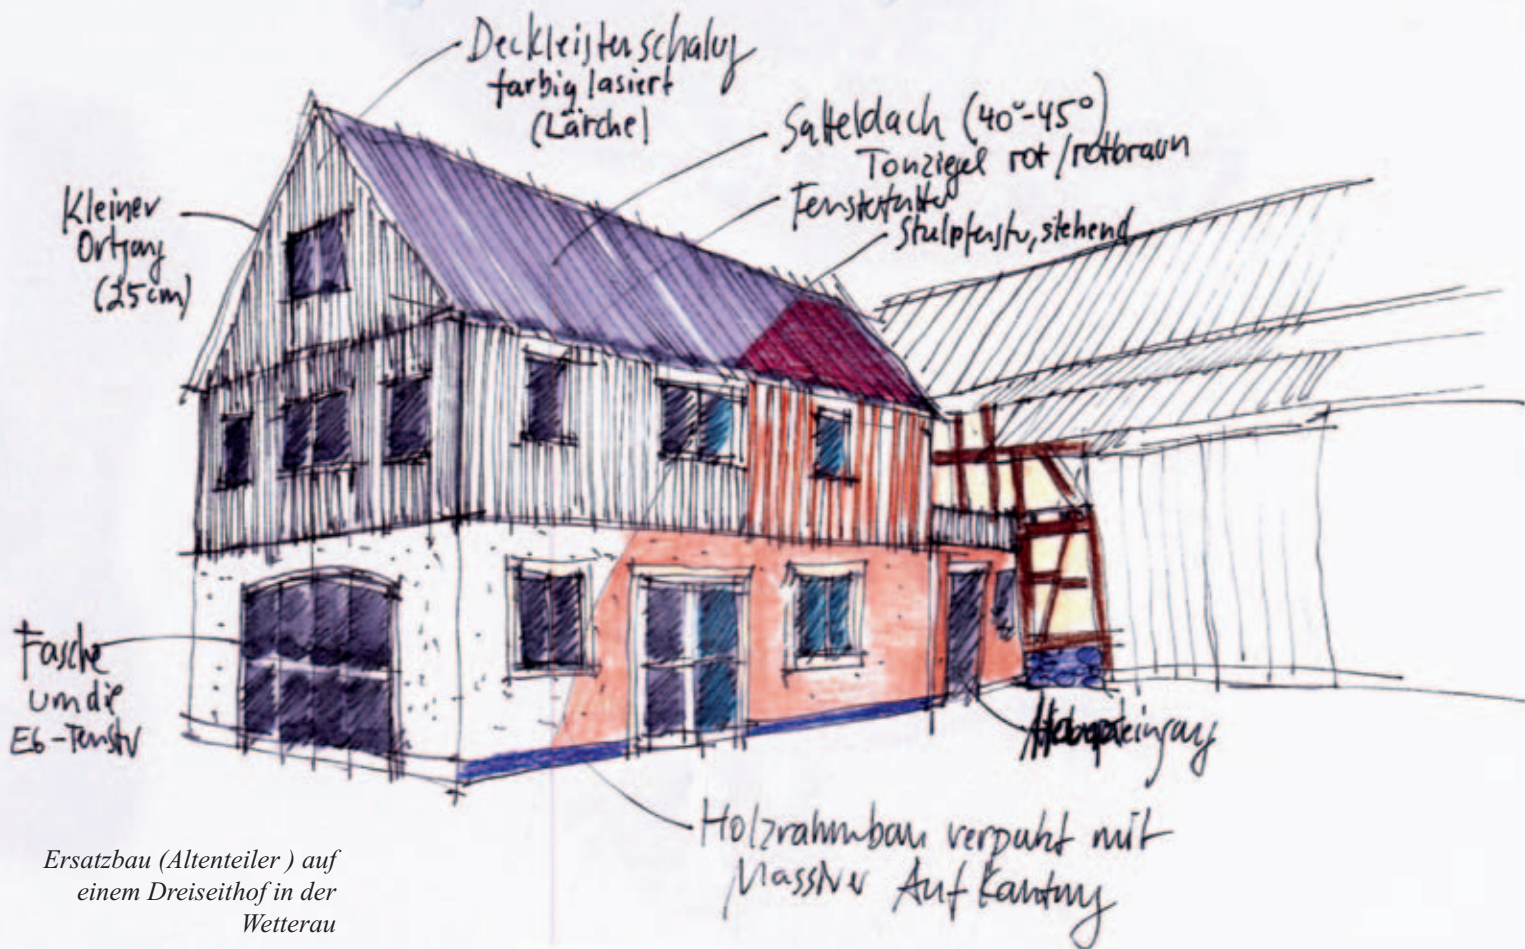 Deckleistenschalung
farbig lasiert
(Lärche)
Satteldach (40°-45°)
Tonziegel rot/rotbraun
Stulpfenstr, stehend
Kleiner
Ortgang
(25cm)
Fasche
um die
EG-Fenstr
Holzrahmbau verputzt mit
Massiver Aufkantung
Ersatzbau (Altenteiler ) auf
einem Dreiseithof in der
Wetterau